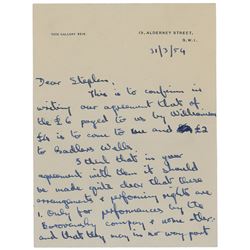 13, ALDERNEY STREET,
S.W.1.
31/3/54
Dear Stephen,
This is to confirm in
writing our agreement that of
the £6 paid to us by
£4 is to come to me and £2
to Sadlers Wells.
I think that in your
agreement with them it should
be made quite clear that these
arrangements & performing rights are
1. Only for performances by the
company & none other.
and that they may in no way part